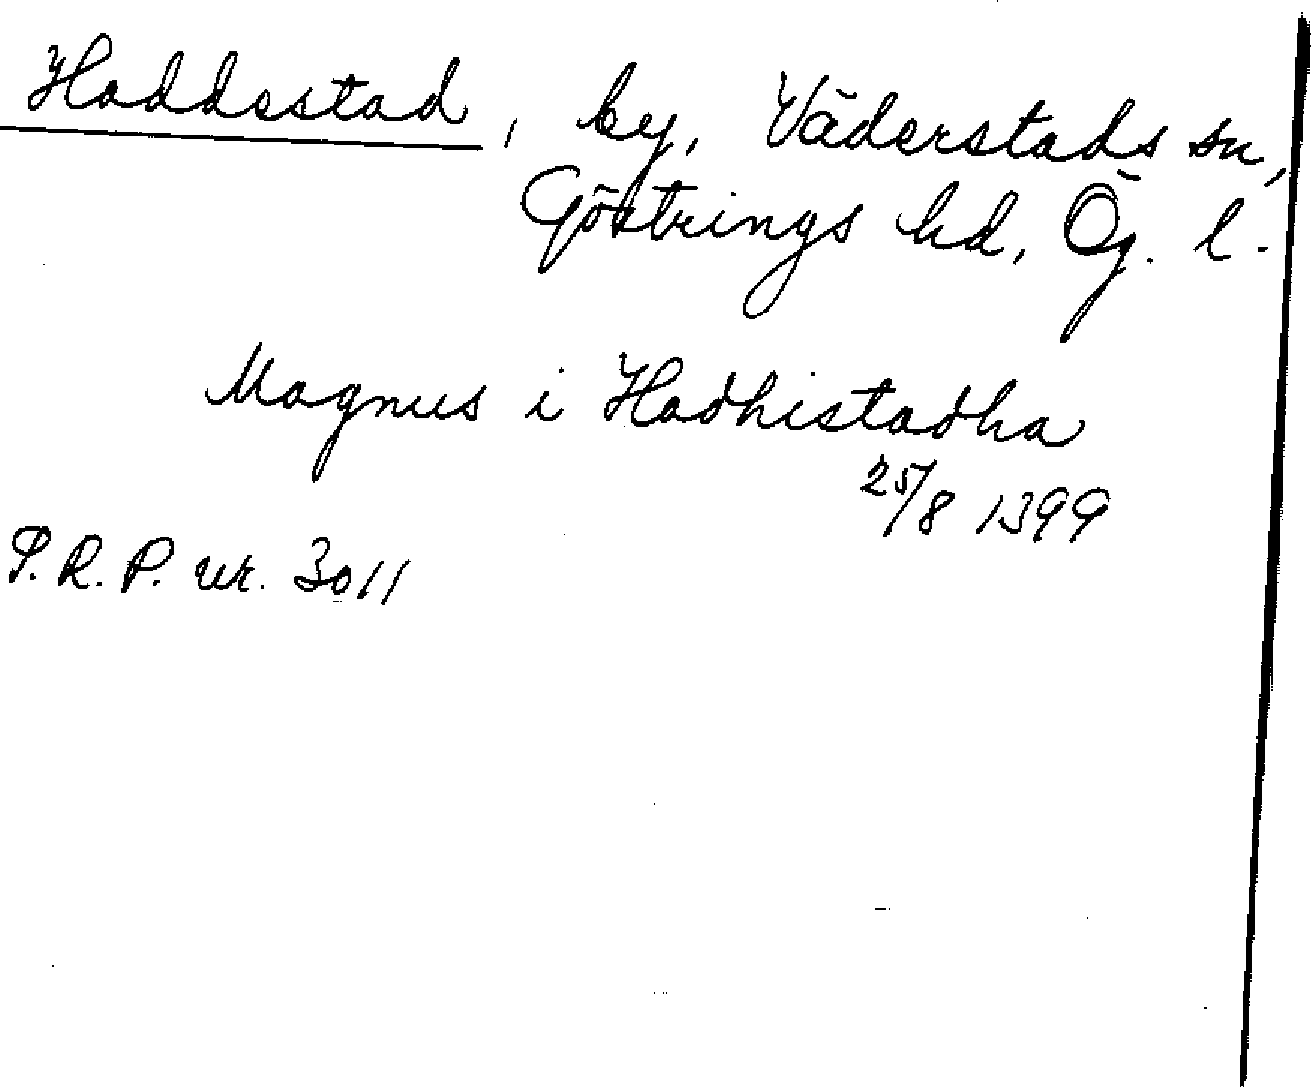 Haddestad, by, Väderstads sn,
Göstrings hd, Ög. l.
Magnus i Hadhistadha
25/8 1399
P. R. P. nr. 3011